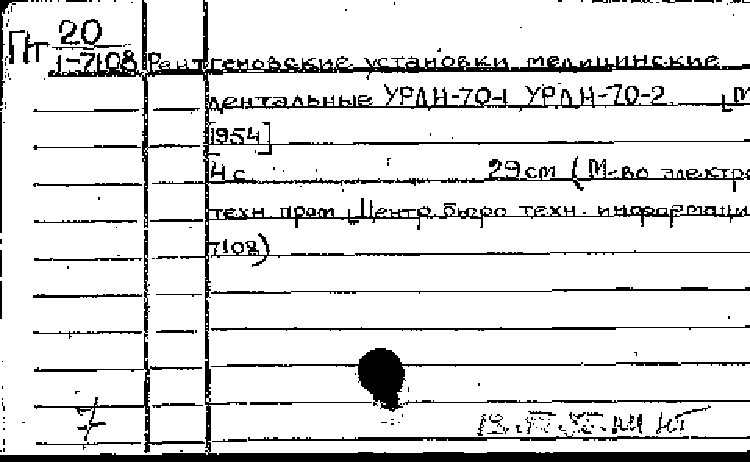 Пт 20
1-7108 Рентгеновские установки медицинские
дентальные УРДН-70-1 УРДН-70-2 [М
1954]
4 с 29 cm (М-во электро
техн пром Центр бюро техн. информаци
7108)
7